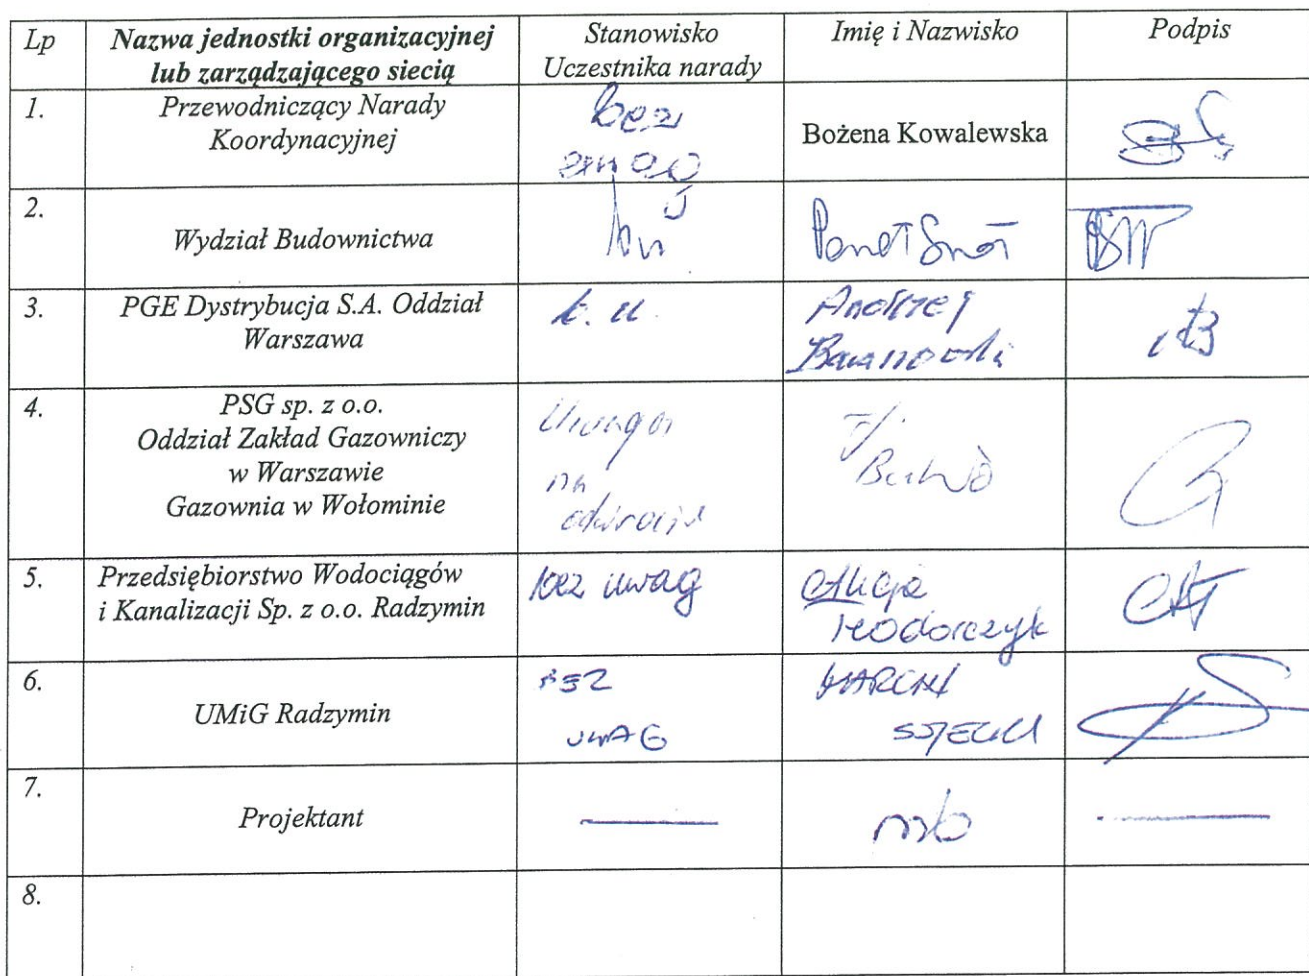 Lp
Nazwa jednostki organizacyjnej
lub zarządzającego siecią
Stanowisko
Uczestnika narady
Imię i Nazwisko
Podpis
1.
Przewodniczący Narady
Koordynacyjnej
bez
uwag
Bożena Kowalewska
2.
Wydział Budownictwa
3.
PGE Dystrybucja S.A. Oddział
Warszawa
b. u.
Andrzej
4.
PSG sp. z o.o.
Oddział Zakład Gazowniczy
w Warszawie
Gazownia w Wołominie
Uwaga
na
odwrocie
5.
Przedsiębiorstwo Wodociągów
i Kanalizacji Sp. z o.o. Radzymin
bez uwag
Alicja
6.
UMiG Radzymin
BEZ
UWAG
MARCIN
7.
Projektant
nb
8.